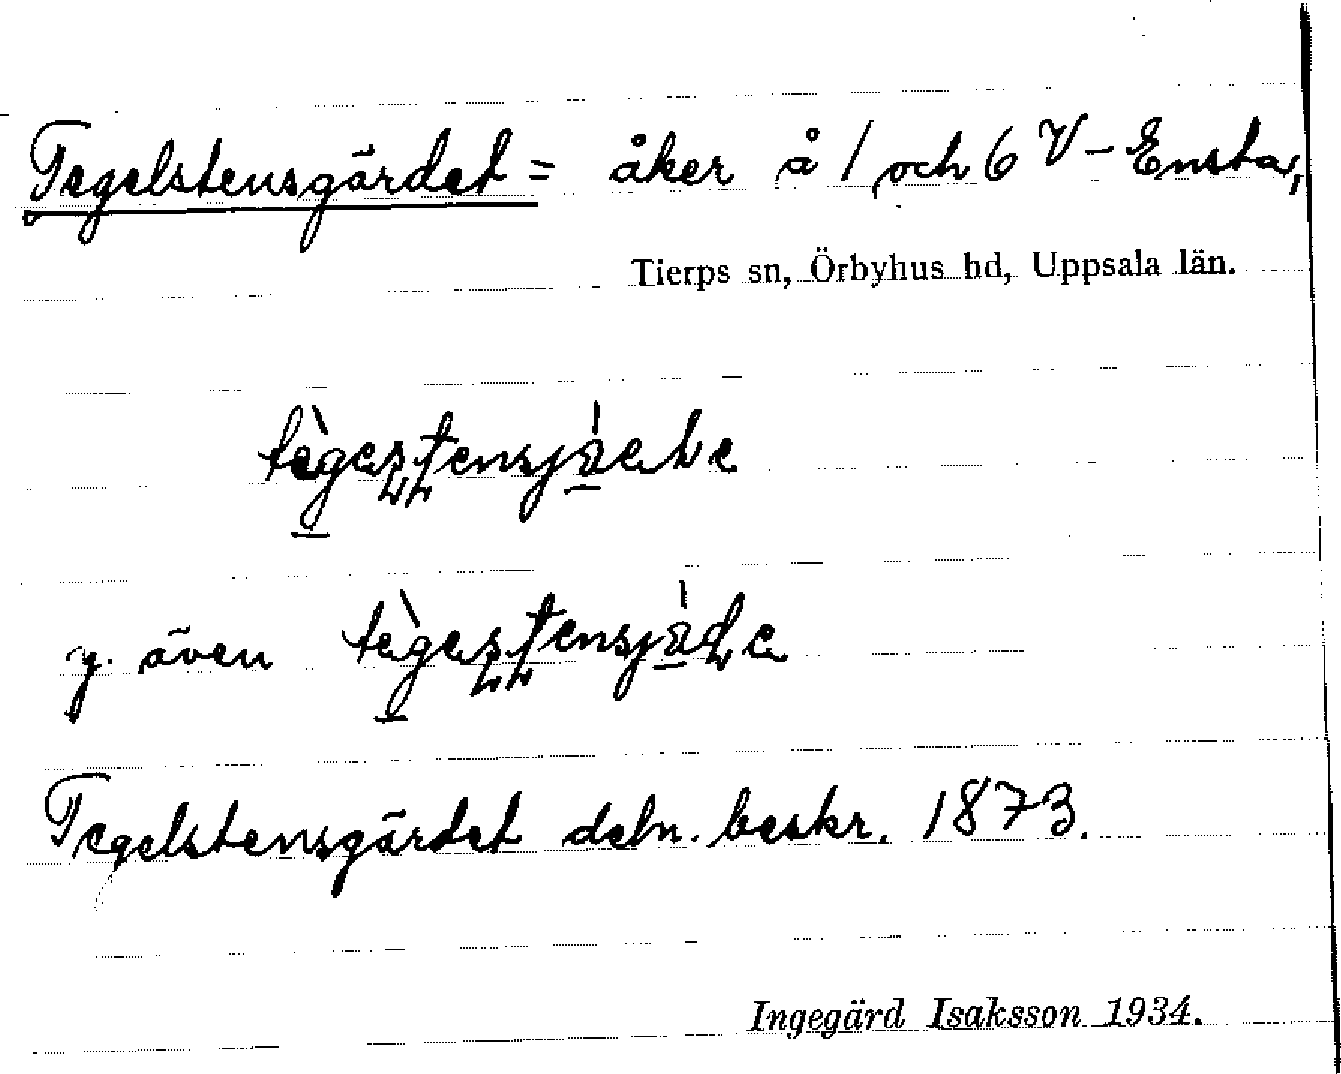 Tegelstensgärdet = åker å 1 och 6 V-Ensta,
Tierps sn, Örbyhus hd, Uppsala län.
y. även
Tegelstensgärdet deln. beskr. 1873.
Ingegärd Isaksson 1934.